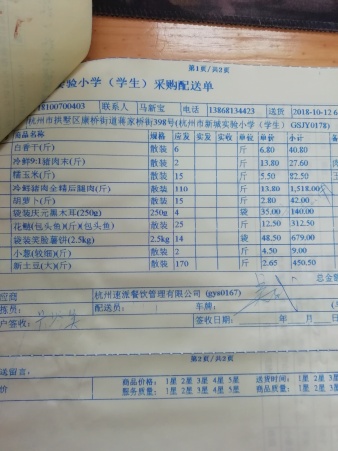 第1页/共2页
实验小学（学生）采购配送单
8100700403 联系人 马新宝 电话 13868134423 送货 2018-10-12 6
杭州市拱墅区康桥街道蒋家桥街398号(杭州市新城实验小学（学生）GSJY0178)
商品名称 规格 应发 实发 实收 单位 单价 小计
白香干(斤) 散装 6 斤 6.80 40.80
冷鲜9:1猪肉末(斤) 散装 2 斤 13.80 27.60
糯玉米(斤) 散装 15 斤 5.50 82.50
冷鲜猪肉全精后腿肉(斤) 散装 110 斤 13.80 1,518.00
胡萝卜(斤) 散装 15 斤 2.80 42.00
袋装庆元黑木耳(250g) 250g 4 袋 35.00 140.00
花鲢(包头鱼)(斤)(包头鱼) 散装 25 斤 12.50 312.50
袋装奕脆薯饼(2.5kg) 2.5kg 14 袋 48.50 679.00
小葱(较细)(斤) 散装 2 斤 4.50 9.00
新土豆(大)(斤) 散装 170 斤 2.65 450.50
总金额
应商 杭州速派餐饮管理有限公司 (gys0167)
拣员: 配送员: 车牌:
户签收: 签收日期: 年 月
第2页/共2页
送留言:
价 商品价格: 1星 2星 3星 4星 5星 送货时间: 1星 2星 3星
服务质量: 1星 2星 3星 4星 5星 商品质量: 1星 2星 3星